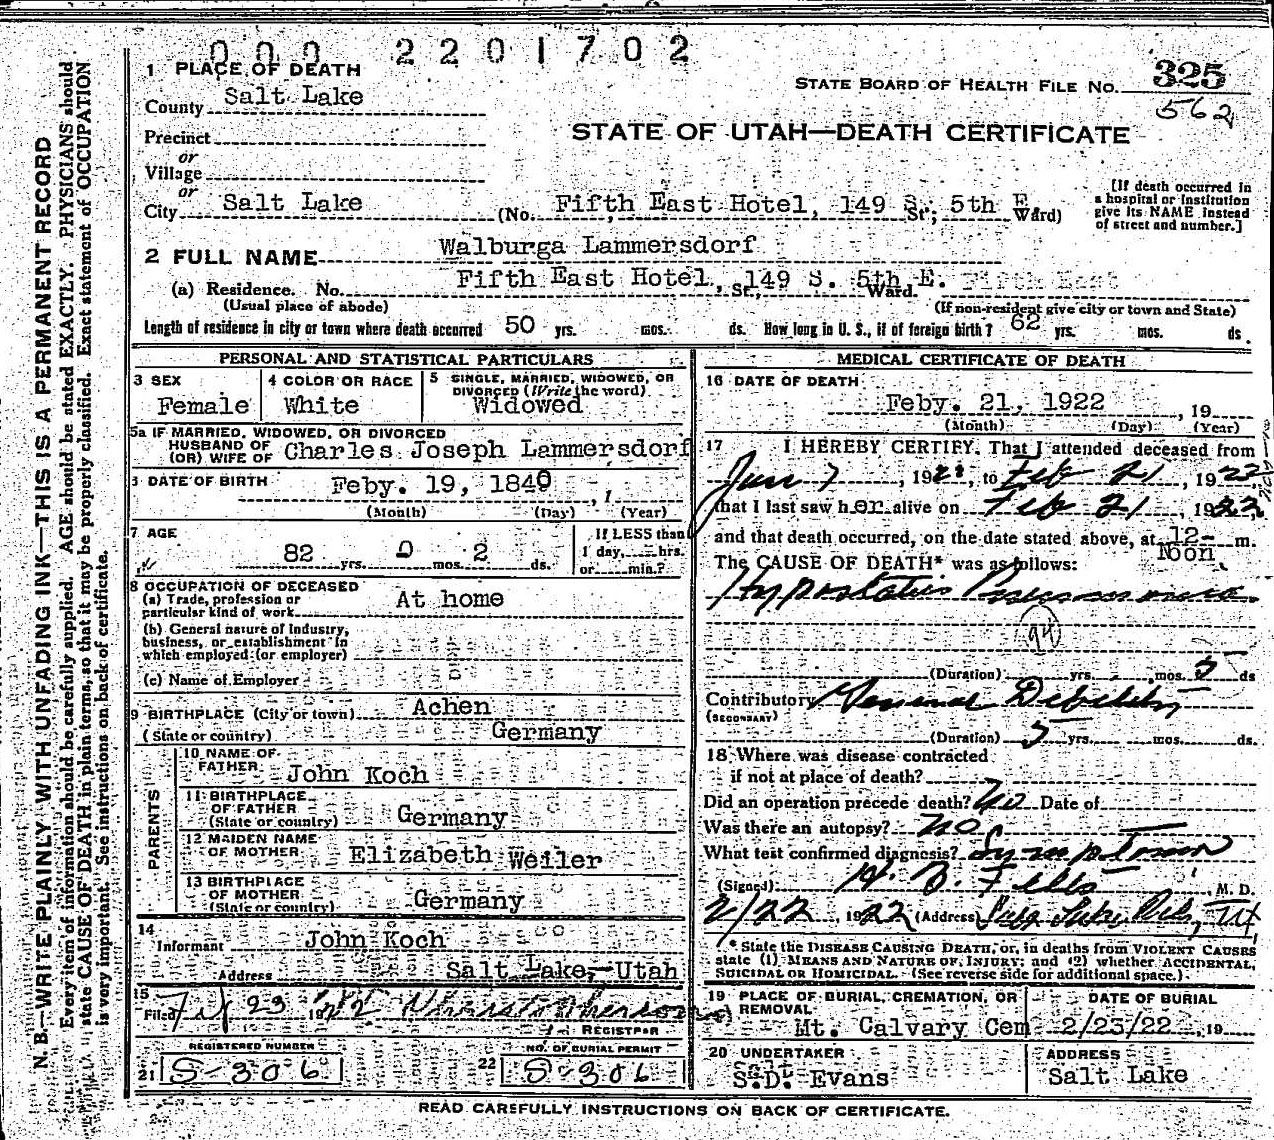 0 0 0 2 2 0 1 7 0 2
1 PLACE OF DEATH
STATE BOARD OF HEALTH FILE NO. 325
562
County Salt Lake
STATE OF UTAH—DEATH CERTIFICATE
Precinct
or
Village
or
City Salt Lake (No. Fifth East Hotel, 149 S. St; 5th E. Ward)
[If death occurred in a hospital or institution give its NAME instead of street and number.]
2 FULL NAME Walburga Lammersdorf
(a) Residence. No. Fifth East Hotel, 149 S. St., 5th E. Ward. Fifth East
(Usual place of abode) (If non-resident give city or town and State)
Length of residence in city or town where death occurred 50 yrs. mos. ds. How long in U. S., if of foreign birth? 62 yrs. mos. ds.
PERSONAL AND STATISTICAL PARTICULARS
3 SEX Female
4 COLOR OR RACE White
5 SINGLE, MARRIED, WIDOWED, OR DIVORCED (Write the word) Widowed
5a IF MARRIED, WIDOWED, OR DIVORCED
HUSBAND OF
(OR) WIFE OF Charles Joseph Lammersdorf
DATE OF BIRTH Feby. 19, 1840, 1
(Month) (Day) (Year)
7 AGE 82 yrs. 0 mos. 2 ds.
If LESS than 1 day, hrs. or min.?
8 OCCUPATION OF DECEASED
(a) Trade, profession or particular kind of work At home
(b) General nature of industry, business, or establishment in which employed (or employer)
(c) Name of Employer
9 BIRTHPLACE (City or town) Achen
(State or country) Germany
PARENTS
10 NAME OF FATHER John Koch
11 BIRTHPLACE OF FATHER (State or country) Germany
12 MAIDEN NAME OF MOTHER Elizabeth Weiler
13 BIRTHPLACE OF MOTHER (State or country) Germany
14 Informant John Koch
Address Salt Lake, Utah
15 Filed 23 1922
REGISTRAR
REGISTERED NUMBER
21 S-306
NO. OF BURIAL PERMIT
22 S-306
MEDICAL CERTIFICATE OF DEATH
16 DATE OF DEATH
Feby. 21, 1922, 19
(Month) (Day) (Year)
17 I HEREBY CERTIFY, That I attended deceased from
Jan 7, 1922, to Feb 21, 1922,
that I last saw her alive on Feb 21, 1922,
and that death occurred, on the date stated above, at 12- m.
Noon
The CAUSE OF DEATH* was as follows:
Hypostatic Pneumonia
(Duration) yrs. mos. 5 ds
Contributory General Debility
(SECONDARY)
(Duration) 5 yrs. mos. ds.
18 Where was disease contracted
if not at place of death?
Did an operation precede death? No Date of
Was there an autopsy? No
What test confirmed diagnosis? Symptoms
(Signed) , M. D.
2/22, 1922 (Address)
* State the DISEASE CAUSING DEATH, or, in deaths from VIOLENT CAUSES
state (1) MEANS AND NATURE OF INJURY; and (2) whether ACCIDENTAL,
SUICIDAL OR HOMICIDAL. (See reverse side for additional space.)
19 PLACE OF BURIAL, CREMATION, OR REMOVAL
Mt. Calvary Cem
DATE OF BURIAL
2/23/22, 19
20 UNDERTAKER
S. D. Evans
ADDRESS
Salt Lake
READ CAREFULLY INSTRUCTIONS ON BACK OF CERTIFICATE.
N. B.—WRITE PLAINLY WITH UNFADING INK—THIS IS A PERMANENT RECORD
Every item of information should be carefully supplied. AGE should be stated EXACTLY. PHYSICIANS should
state CAUSE OF DEATH in plain terms, so that it may be properly classified. Exact statement of OCCUPATION
is very important. See instructions on back of certificate.